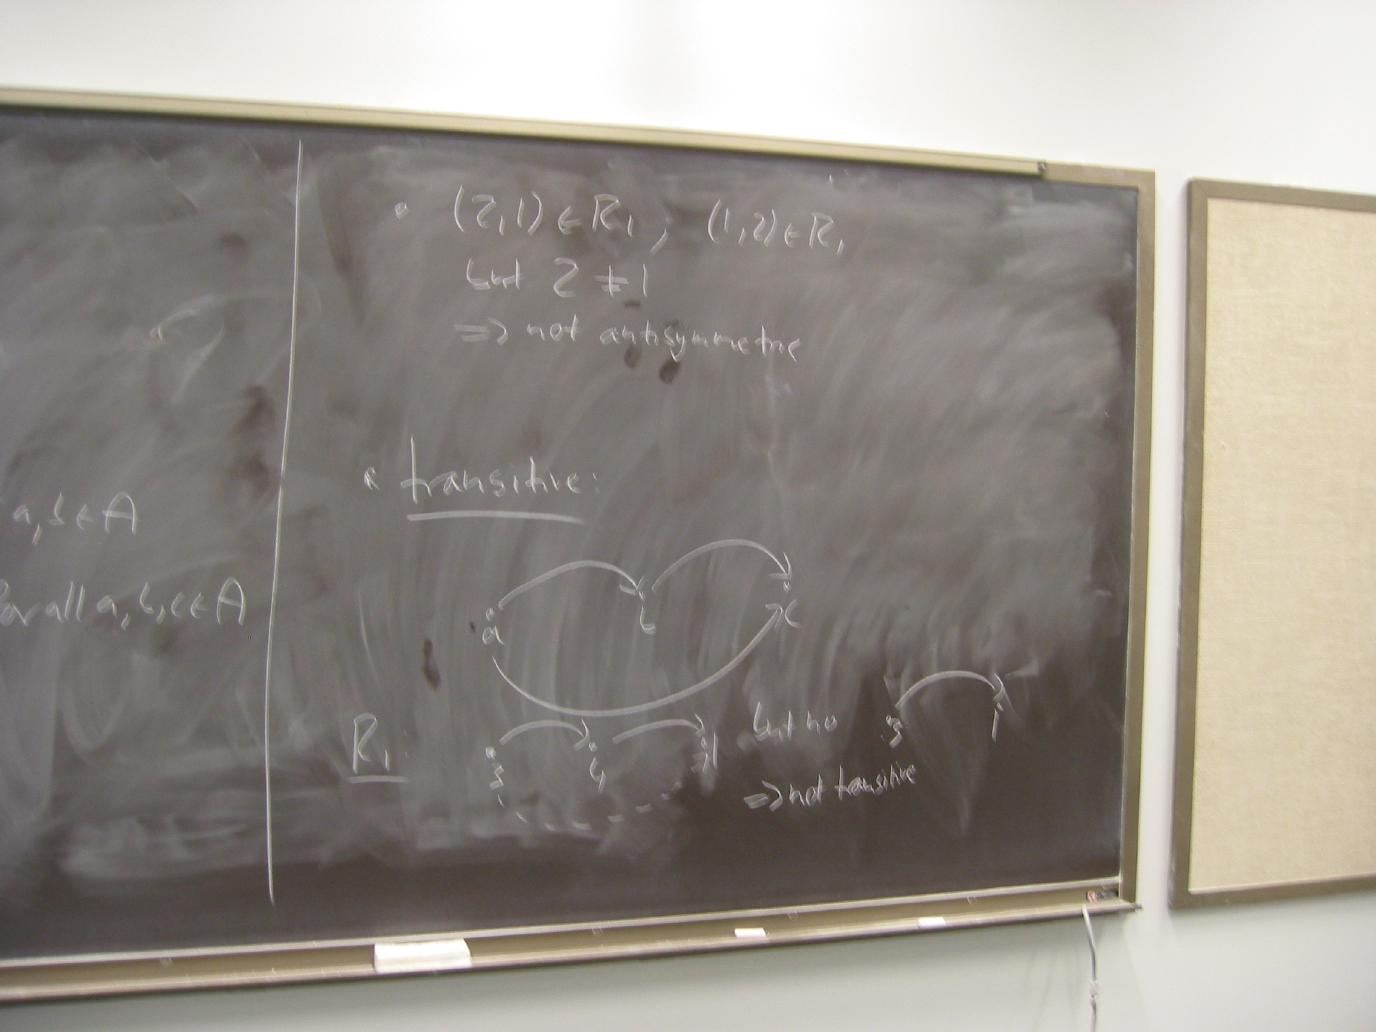 a, b ∈ A
for all a, b, c ∈ A
• (2,1) ∈ R₁, (1,2) ∈ R₁
but 2 ≠ 1
=> not antisymmetric
• transitive:
a b c
R₁ 3 4 1 but no 3 1
=> not transitive